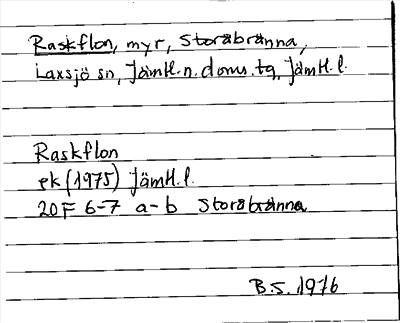 Raskflon, myr, Storåbränna,
Laxsjö sn, Jämtl. n. doms. tg, Jämtl. l.
Raskflon
ek (1975) Jämtl. l.
20F 6-7 a-b Storåbränna
B.S. 1976